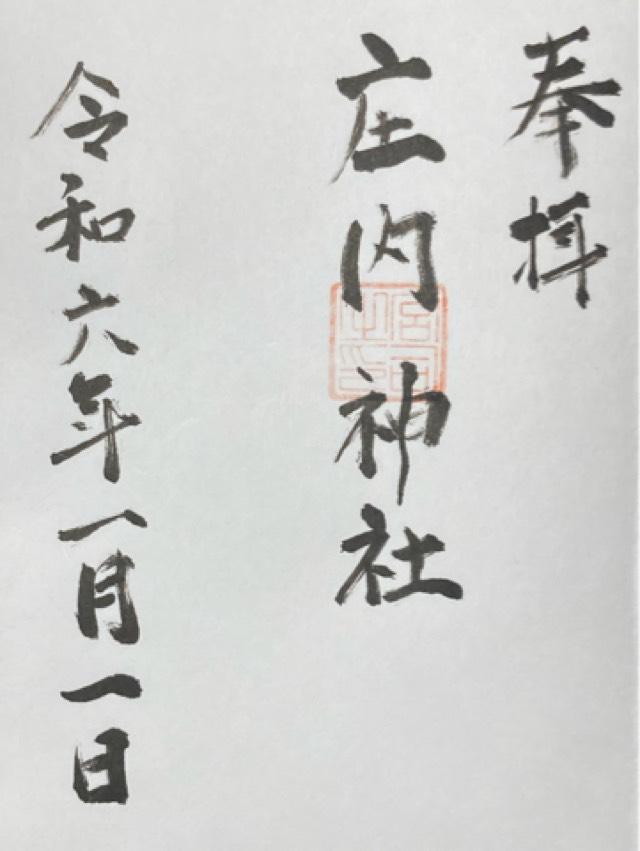 奉拝
庄内神社
令和六年一月一日